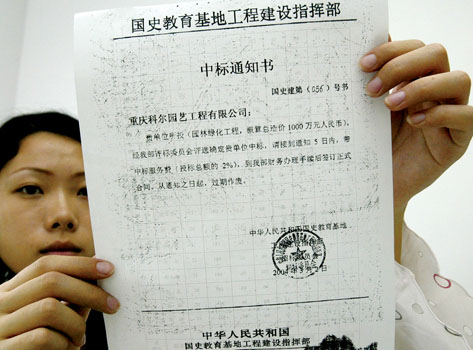 国史教育基地工程建设指挥部
中标通知书
国史建第(056)号书
重庆科尔园艺工程有限公司:
贵单位所投(园林绿化工程,概算总造价1000万元人民币),
经我部评标委员会评选确定贵单位中标,请接到通知5日内,带
中标服务费(投标总额的2%),到我部财务办理手续后签订正式
合同,从通知之日起,过期作废。
中华人民共和国国史教育基地
工程建设指挥部
中华人民共和国
国史教育基地工程建设指挥部